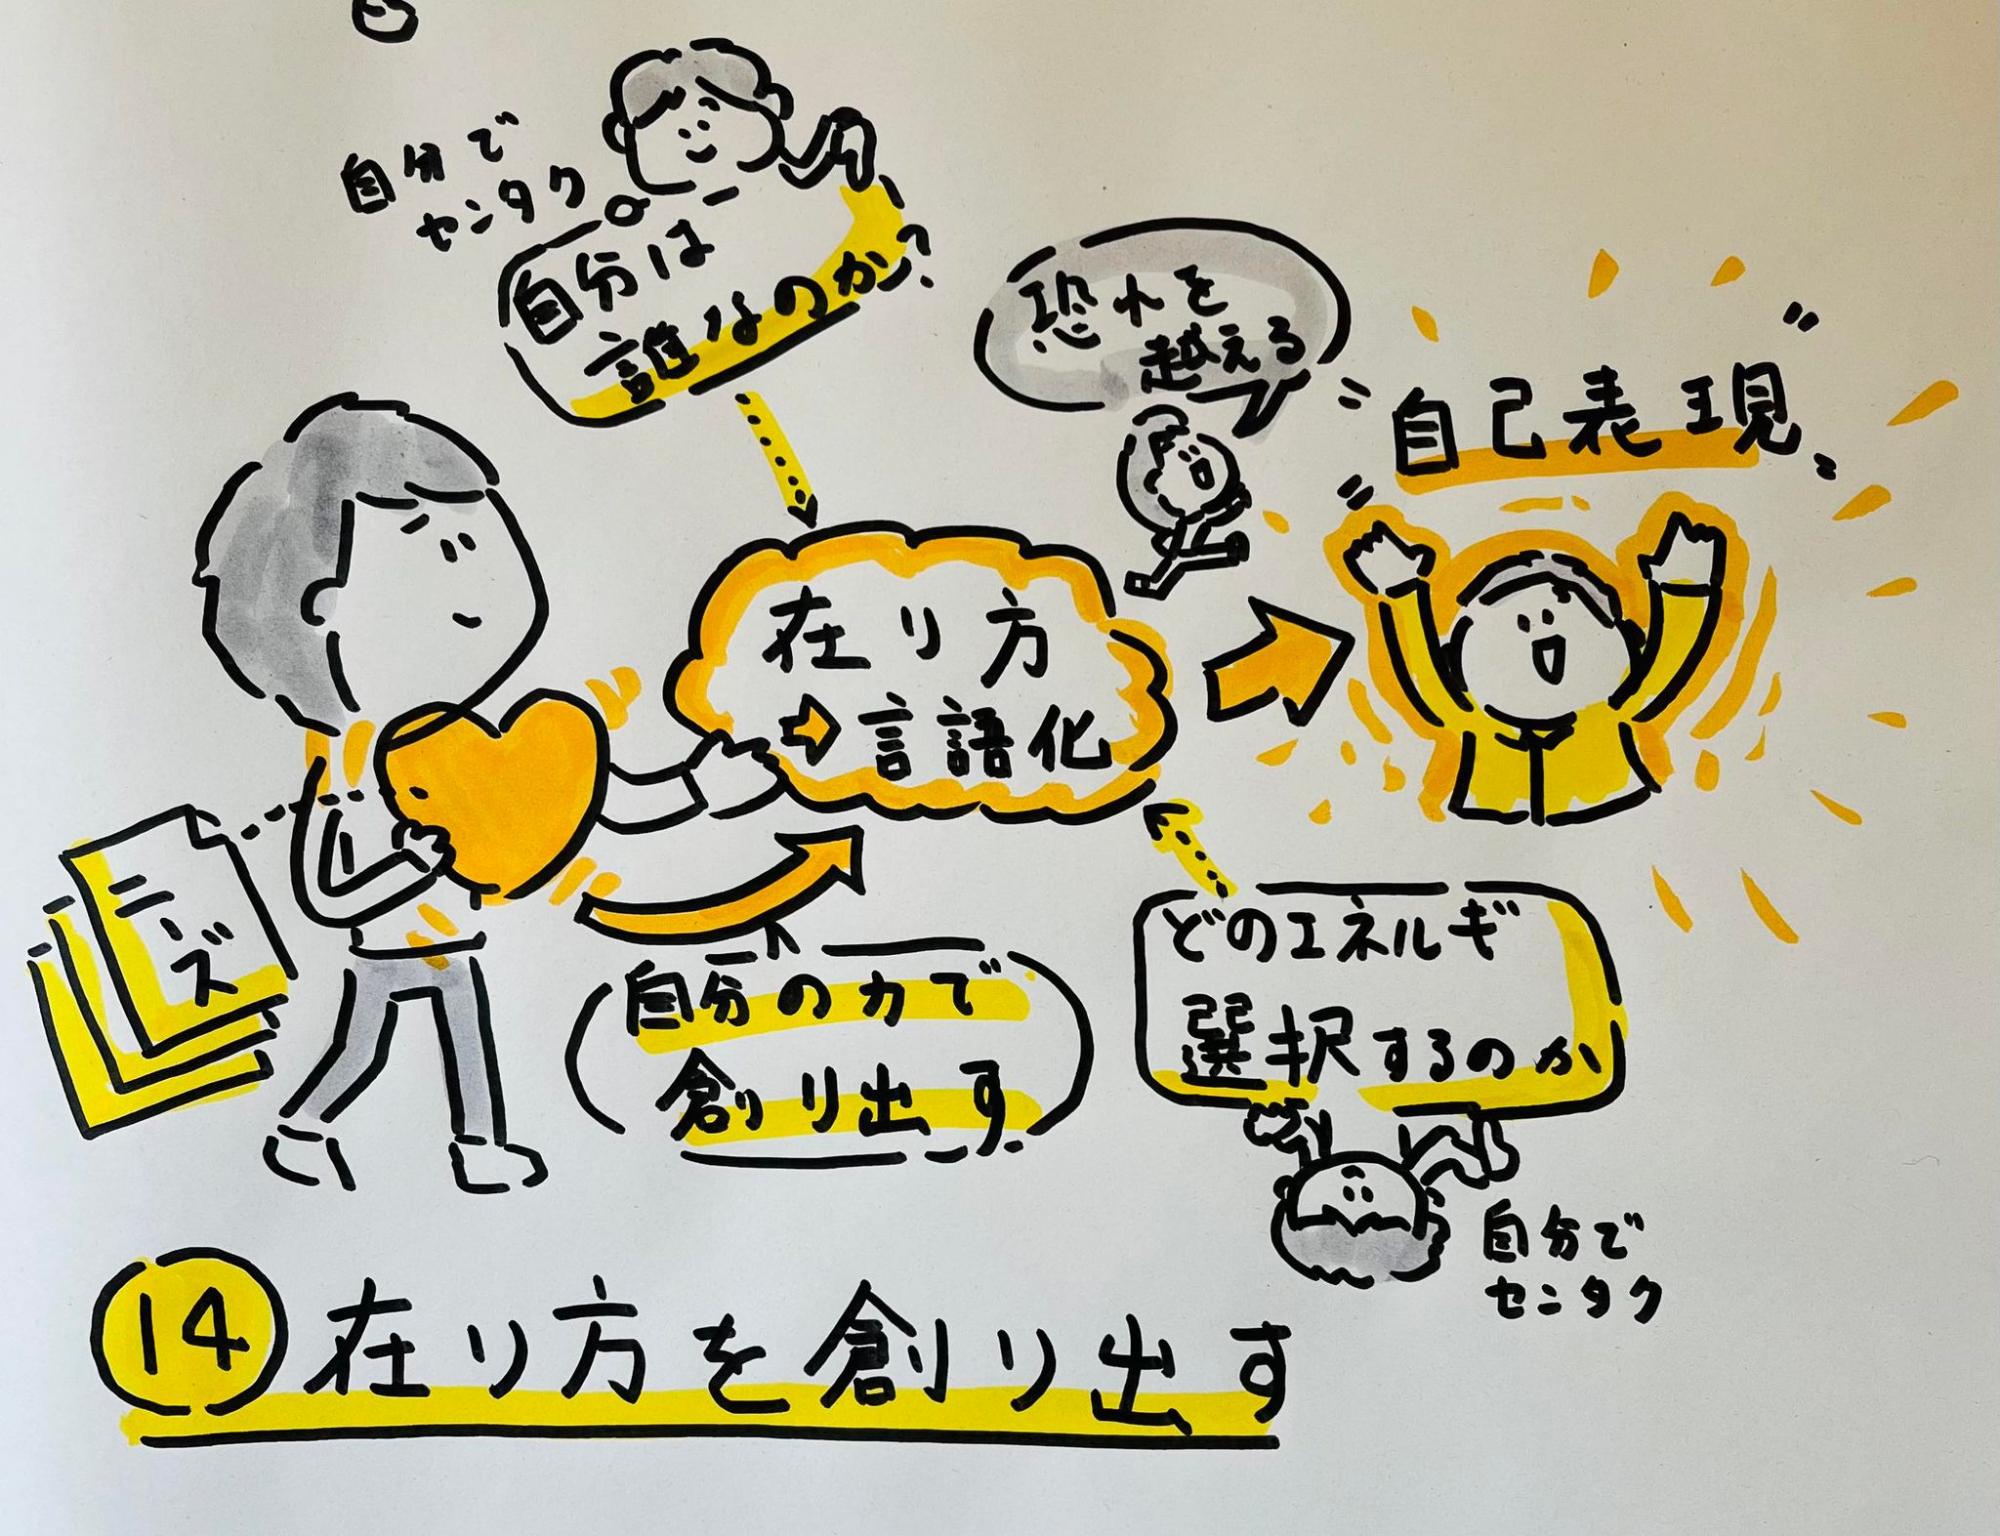 自分で
センタク
自分は
誰なのか?
恐れを
越える
自己表現
在り方
➡言語化
ニーズ
自分の力で
創り出す
どのエネルギ
選択するのか
自分で
センタク
14 在り方を創り出す